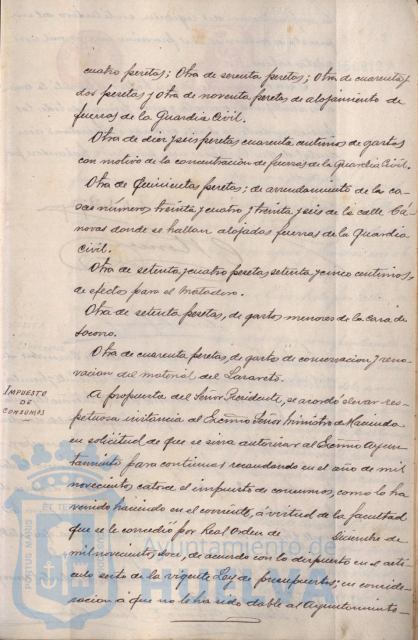 cuatro pesetas; Otra de serenta pesetas; Otra de cuarenta y
dos pesetas y otra de noventa pesetas de alojamiento de
fuerzas de la Guardia Civil.
Otra de diez y seis pesetas cuarenta centimos de gastos
con motivo de la concentracion de fuerzas de la Guardia Civil.
Otra de Quinientas pesetas; de arrendamiento de la ca-
sas números treinta y cuatro y treinta y seis de la calle Cá-
novas donde se hallan alojadas fuerzas de la Guardia
civil.
Otra de setenta y cuatro pesetas setenta y cinco centimos,
de efectos para el Matadero.
Otra de setenta pesetas, de gastos menores de la Casa de
Socorro.
Otra de cuarenta pesetas, de gasto de conservacion y reno-
vacion del material del Lazareto.
IMPUESTO
DE
CONSUMOS
A propuesta del Señor Presidente, se acordó elevar res-
petuosa instancia al Excmo Señor Ministro de Hacienda
en solicitud de que se sirva autorizar al Excmo Ayun-
tamiento para continuar recaudando en el año de mil
novecientos catorce el impuesto de consumos, como lo ha
venido haciendo en el corriente, á virtud de la facultad
que se le concedio por Real Orden de Diciembre de
mil novecientos doce, de acuerdo con lo dispuesto en el arti-
culo sexto de la vigente Ley de presupuestos; en conside-
racion á que no le ha sido dable al Ayuntamiento
Ayuntamiento de
HUELVA
PORTUS MARIS